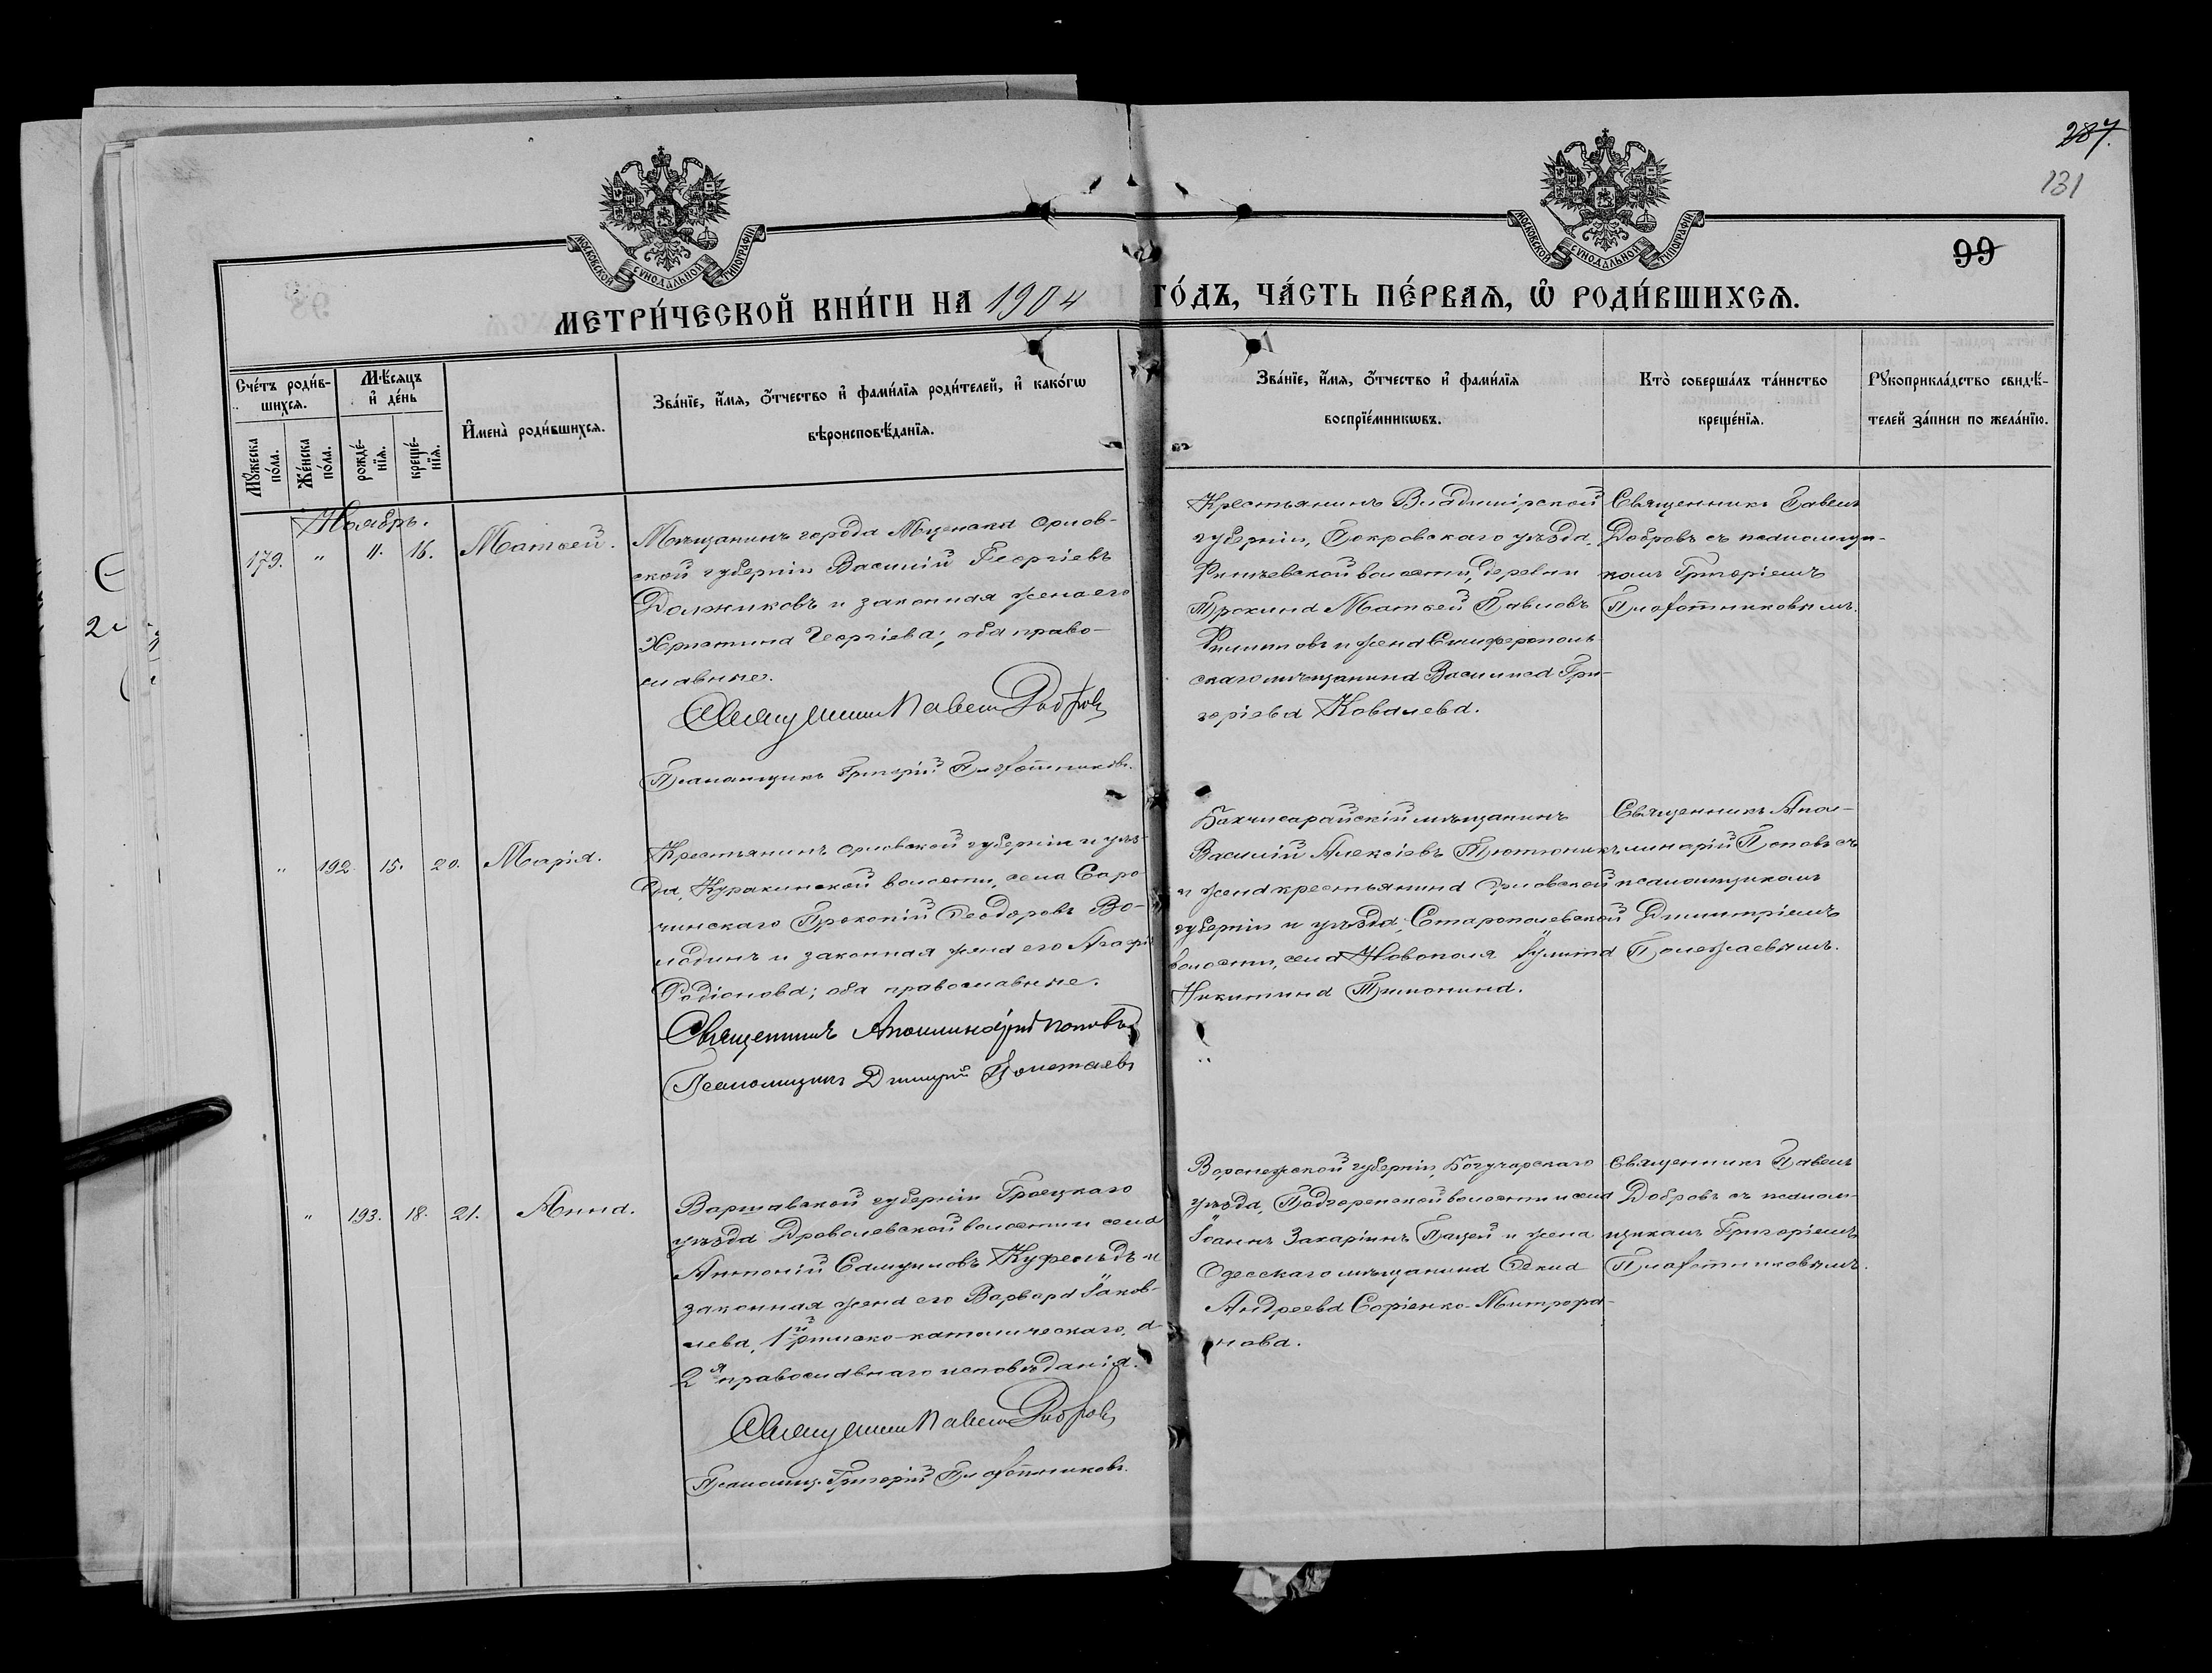 287.
131
99
МОСКОВСКОЙ СѴНОДАЛЬНОЙ ТИПОГРАФІИ
МОСКОВСКОЙ СѴНОДАЛЬНОЙ ТИПОГРАФІИ
МЕТРИ́ЧЕСКОЙ КНИ́ГИ НА 1904 ГО́ДЪ, ЧА́СТЬ ПЕ́РВАѦ, Ѽ РОДИ́ВШИХСѦ.
Счéтъ роди́в-
шихсѧ.
Мꙋ́жеска
по́ла.
Же́нска
по́ла.
Мѣ́сяцъ
и҆ де́нь
рожде́-
нїѧ.
креще́-
нїѧ.
И҆мена̀ роди́вшихсѧ.
Зва́нїе, и҆́мѧ, ѻ҆́тчество и҆ фами́лїѧ роди́телей, и҆ како́гѡ
вѣроисповѣ́данїѧ.
Зва́нїе, и҆́мѧ, ѻ҆́тчество и҆ фами́лїѧ
воспрїе́мникѡвъ.
Кто̀ соверша́лъ та́инство
креще́нїѧ.
Рꙋкоприкла́дство свидѣ́-
телей за́писи по жела́нїю.
Ноябрь.
179. " 11. 16. Матѳей.
Мѣщанинъ города Мценска Орлов-
ской губерніи Василій Георгіевъ
Должиковъ и законная жена его
Христина Георгіева; оба право-
славные.
Священникъ Павелъ Добровъ
Псаломщикъ Григорій Плахотниковъ.
Крестьянинъ Владимірской
губерніи, Покровскаго уѣзда,
волости, деревни
Матѳей Павловъ
Филиповъ и жена Симферополь-
скаго мѣщанина Василиса Гри-
горіева Ковалева.
Священникъ Павелъ
Добровъ съ псаломщи-
комъ Григоріемъ
Плахотниковымъ.
" 192. 15. 20. Марія.
Крестьянинъ Орловской губерніи и уѣз-
да, Куракинской волости, села
Прокопій Ѳеодоровъ Во-
лодинъ и законная жена его Агафія
Родіонова; оба православные.
Священникъ Аполлинарій Поповъ
Псаломщикъ Димитрій Полежаевъ
Бахчисарайскій мѣщанинъ
Василій Алексіевъ Тютюникъ
и жена крестьянина Орловской
губерніи и уѣзда, Старопольской
волости, села Новополя Іулита
Никитина Тимонина.
Священникъ Апол-
линарій Поповъ съ
псаломщикомъ
Димитріемъ
Полежаевымъ.
" 193. 18. 21. Анна.
Варшавской губерніи Гроецкаго
уѣзда волости и села
Антоній Самуиловъ Куфельдъ и
законная жена его Варвара Іаков-
лева, 1й римско-католическаго, а
2я православнаго исповѣданія.
Священникъ Павелъ Добровъ
Псаломщ. Григорій Плахотниковъ.
Воронежской губерніи, Богучарскаго
уѣзда, Подгоренской волости и села
Іоаннъ Захаріинъ и жена
Одесскаго мѣщанина
Андреева Соріенко-Митрофа-
нова.
Священникъ Павелъ
Добровъ съ псалом-
щикомъ Григоріемъ
Плахотниковымъ.